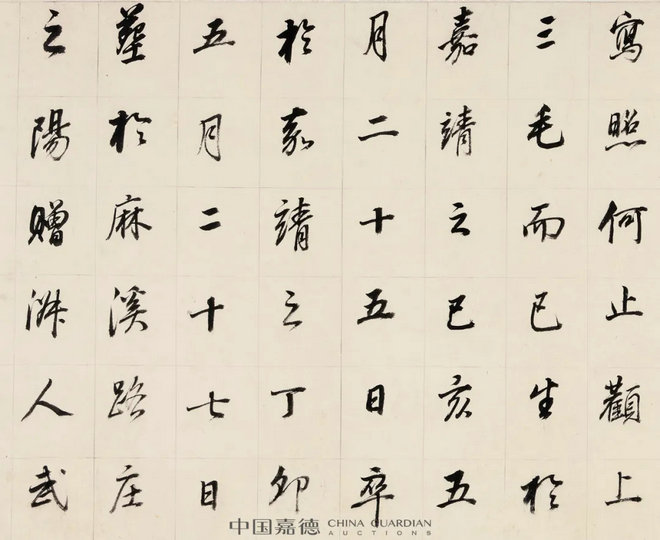 寫照何止顴上
三毛而已生於
嘉靖之己亥五
月二十五日卒
於嘉靖之丁卯
五月二十七日
葬於麻溪路庄
之陽贈淋人武
中国嘉德 CHINA GUARDIAN AUCTIONS